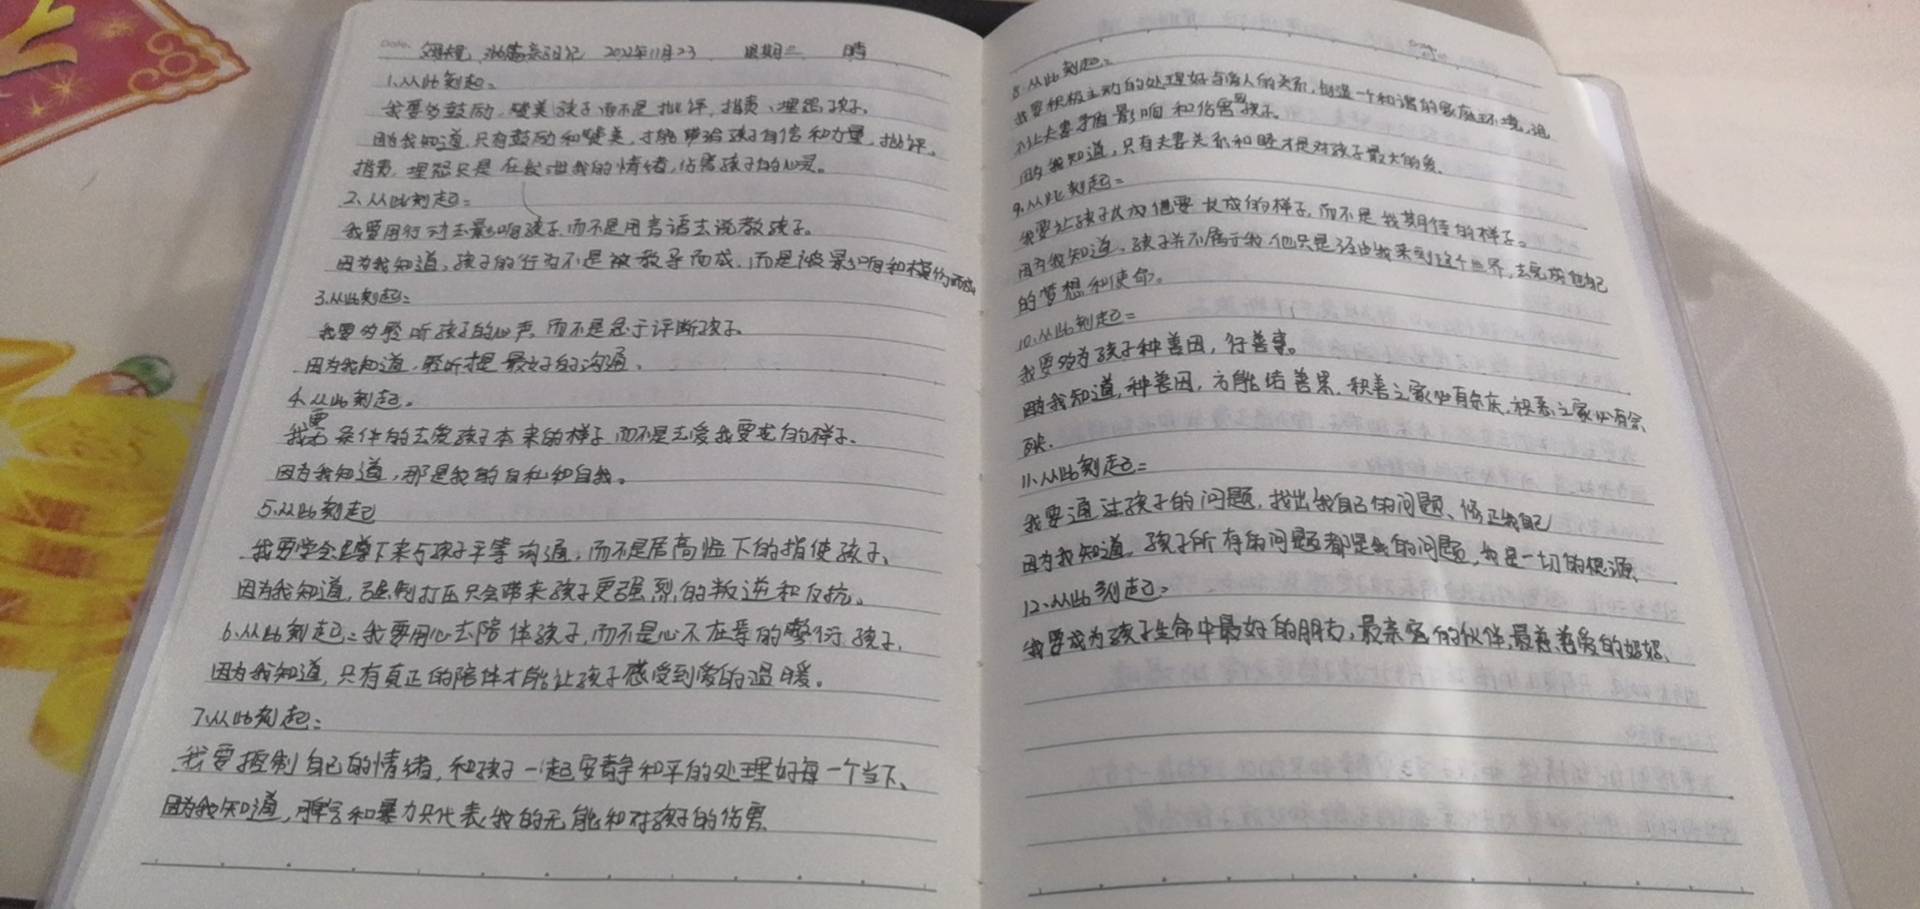 日记 2022年11月23 星期三 晴
1.从此刻起。
我要多鼓励,赞美孩子而不是批评,指责、埋怨孩子。
因为我知道,只有鼓励和赞美,才能带给孩子自信和力量,批评。
指责,埋怨只是在发泄我的情绪,伤害孩子的心灵。
2、从此刻起=
我要用行动去影响孩子,而不是用言语去说教孩子。
因为我知道,孩子的行为不是被教导而成,而是被影响和模仿而成
3.从此刻起:
我要多聆听孩子的心声,而不是急于评断孩子。
因为我知道,聆听才是最好的沟通。
4.从此刻起。
我要无条件的去爱孩子本来的样子,而不是去爱我要求的样子。
因为我知道,那是我的自私和自我。
5.从此刻起
我要学会蹲下来与孩子平等沟通,而不是居高临下的指使孩子、
因为我知道,强制打压只会带来孩子更强烈的叛逆和反抗。
6.从此刻起:我要用心去陪伴孩子,而不是心不在焉的敷衍孩子,
因为我知道,只有真正的陪伴才能让孩子感受到爱的温暖。
7.从此刻起:
我要控制自己的情绪,和孩子一起安静和平的处理好每一个当下、
因为我知道,和暴力只代表我的无能和对孩子的伤害
8.从此刻起=
我要积极主动的处理好与家人的关系,创造一个和谐的家庭环境,
不让夫妻矛盾影响和伤害孩子。
因为我知道,只有夫妻关系和睦才是对孩子最大的爱、
9.从此刻起=
我要让孩子成为他要长成的样子,而不是我期待的样子。
因为我知道,孩子并不属于我,他只是经由我来到这个世界,去完成他自己
的梦想和使命。
10.从此刻起=
我要多为孩子种善因,行善事。
因为我知道,种善因,方能结善果,积善之家必有余庆,积恶之家必有余
殃.
11.从此刻起=
我要通过孩子的问题,找出我自己的问题、修正我自己
因为我知道,孩子所有的问题都是我的问题,我是一切的根源、
12.从此刻起。
我要成为孩子生命中最好的朋友,最亲密的伙伴,最慈爱的妈妈、